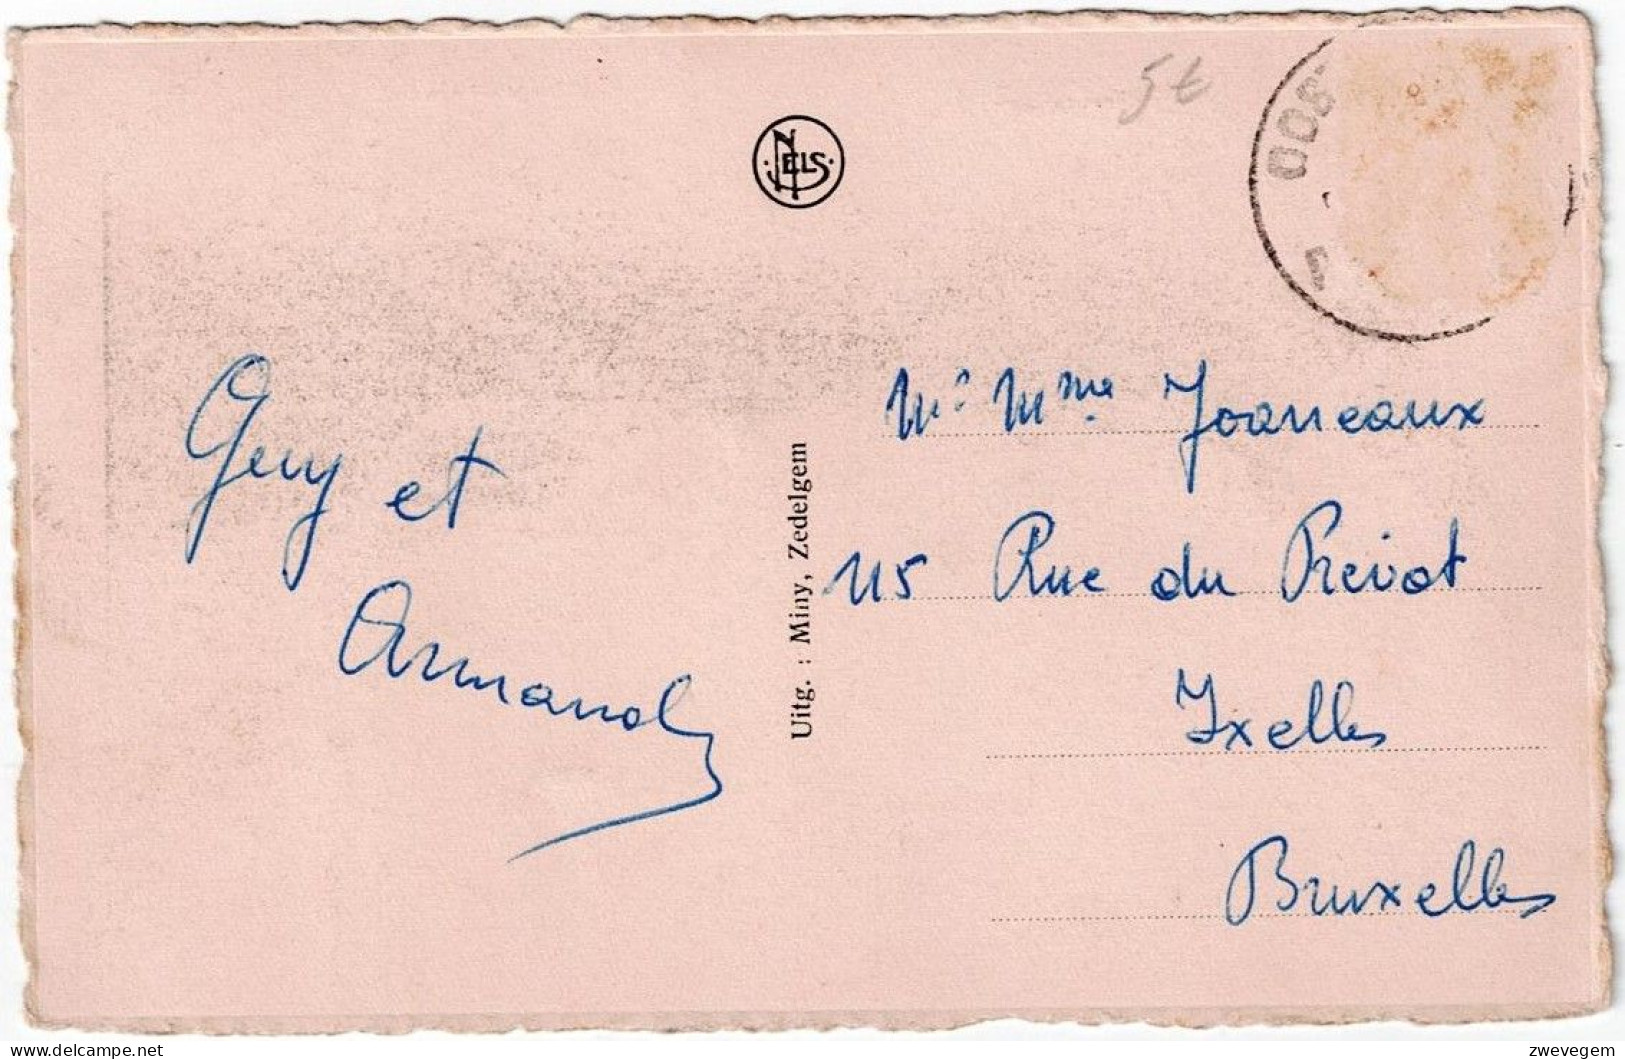 5€
NELS
OOS
Guy et
Armand
Uitg. : Miny, Zedelgem
Mr Mme Joaneaux
115 Rue du Prevot
Ixelles
Bruxelles
delcampe.net
zwevegem